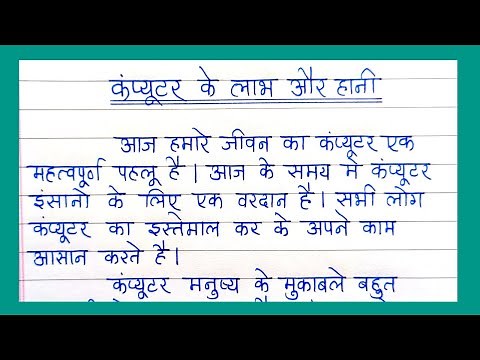 कंप्यूटर के लाभ और हानी
आज हमारे जीवन का कंप्यूटर एक
महत्वपूर्ण पहलू है। आज के समय में कंप्यूटर
इंसानो के लिए एक वरदान है। सभी लोग
कंप्यूटर का इस्तेमाल कर के अपने काम
आसान करते है।
कंप्यूटर मनुष्य के मुकाबले बहुत